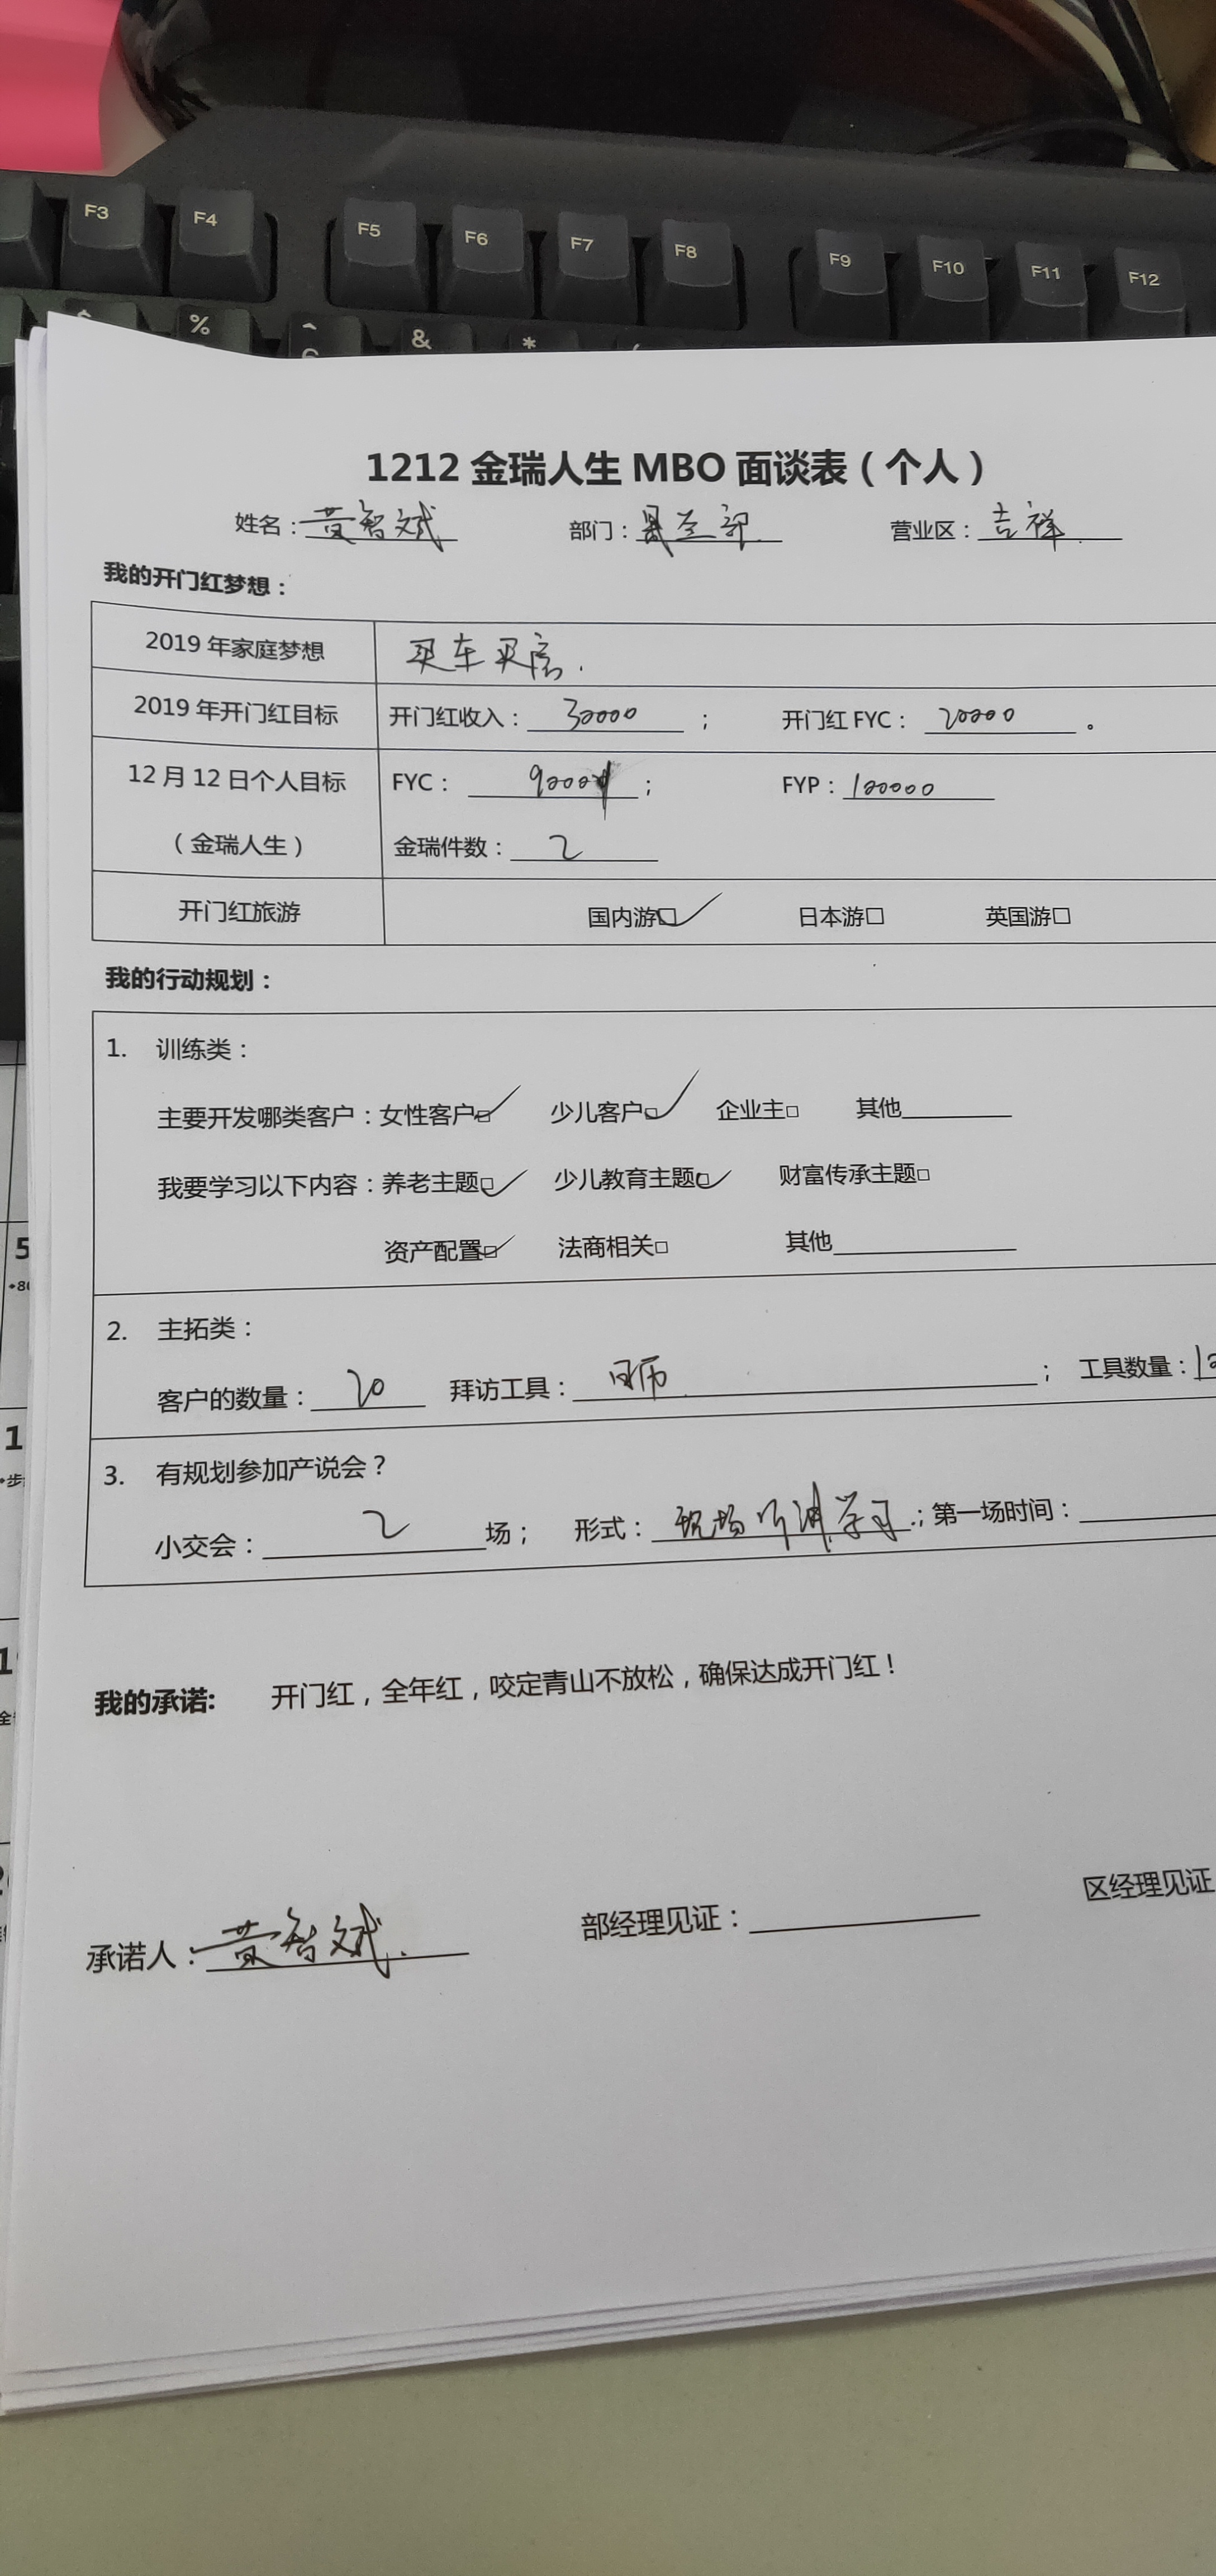 F3 F4 F5 F6 F7 F8 F9 F10 F11 F12
% ^ & *
1212 金瑞人生 MBO 面谈表（个人）
姓名：黄智斌 部门： 营业区：吉祥
我的开门红梦想：
2019 年家庭梦想 买车买房.
2019 年开门红目标 开门红收入：30000； 开门红 FYC：20000。
12 月 12 日个人目标 FYC：9000； FYP：100000
（金瑞人生） 金瑞件数：2
开门红旅游 国内游☑ 日本游□ 英国游□
我的行动规划：
1. 训练类：
主要开发哪类客户：女性客户☑ 少儿客户☑ 企业主□ 其他
我要学习以下内容：养老主题☑ 少儿教育主题☑ 财富传承主题□
资产配置☑ 法商相关□ 其他
2. 主拓类：
客户的数量：20 拜访工具：； 工具数量：
3. 有规划参加产说会？
小交会：2场； 形式：现场听课学习.；第一场时间：
我的承诺: 开门红，全年红，咬定青山不放松，确保达成开门红！
承诺人：黄智斌. 部经理见证： 区经理见证